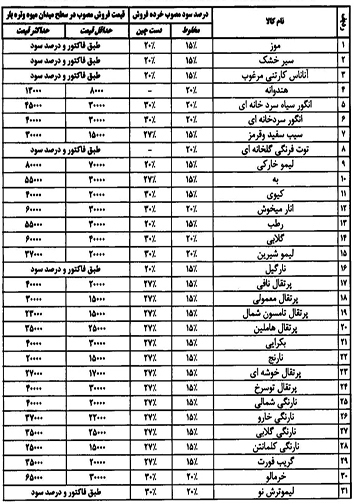 ردیف | نام کالا | درصد سود مصوب خرده فروش | قیمت فروش مصوب در سطح میدان میوه وتره بار
مخلوط | دست چین | حداقل قیمت | حداکثر قیمت
۱ | موز | ۱۵٪ | ۲۰٪ | طبق فاکتور و درصد سود
۲ | سیر خشک | ۱۵٪ | ۲۰٪ | طبق فاکتور و درصد سود
۳ | آناناس کارتنی مرغوب | ۱۵٪ | ۲۰٪ | طبق فاکتور و درصد سود
۴ | هندوانه | - | ۲۰٪ | ۸۰۰۰ | ۱۳۰۰۰
۵ | انگور سیاه سرد خانه ای | ۱۵٪ | ۳۰٪ | ۳۰۰۰۰ | ۴۵۰۰۰
۶ | انگور سردخانه ای | ۱۵٪ | ۳۰٪ | ۳۰۰۰۰ | ۴۰۰۰۰
۷ | سیب سفید وقرمز | ۱۵٪ | ۲۷٪ | ۱۵۰۰۰ | ۳۰۰۰۰
۸ | توت فرنگی گلخانه ای | - | ۲۰٪ | طبق فاکتور و درصد سود
۹ | لیمو خارکی | ۱۵٪ | ۲۰٪ | ۷۰۰۰۰ | ۸۰۰۰۰
۱۰ | به | ۱۵٪ | ۲۷٪ | ۳۰۰۰۰ | ۵۵۰۰۰
۱۱ | کیوی | ۱۵٪ | ۳۰٪ | ۲۰۰۰۰ | ۴۰۰۰۰
۱۲ | انار میخوش | ۱۵٪ | ۳۰٪ | ۳۰۰۰۰ | ۶۰۰۰۰
۱۳ | رطب | ۱۵٪ | ۲۰٪ | ۳۰۰۰۰ | ۵۵۰۰۰
۱۴ | گلابی | ۱۵٪ | ۳۰٪ | ۴۰۰۰۰ | ۶۰۰۰۰
۱۵ | لیمو شیرین | ۱۵٪ | ۳۰٪ | ۲۰۰۰۰ | ۳۷۰۰۰
۱۶ | نارگیل | ۱۵٪ | ۲۰٪ | طبق فاکتور و درصد سود
۱۷ | پرتقال نافی | ۱۵٪ | ۲۷٪ | ۲۰۰۰۰ | ۴۰۰۰۰
۱۸ | پرتقال معمولی | ۱۵٪ | ۲۷٪ | ۱۵۰۰۰ | ۳۰۰۰۰
۱۹ | پرتقال تامسون شمال | ۱۵٪ | ۲۷٪ | ۱۵۰۰۰ | ۲۳۰۰۰
۲۰ | پرتقال هاملین | ۱۵٪ | ۲۷٪ | ۲۵۰۰۰ | ۳۵۰۰۰
۲۱ | بکرایی | ۱۵٪ | ۲۷٪ | ۳۰۰۰۰ | ۴۰۰۰۰
۲۲ | نارنج | ۱۵٪ | ۲۷٪ | ۱۵۰۰۰ | ۲۰۰۰۰
۲۳ | پرتقال خوشه ای | ۱۵٪ | ۲۷٪ | ۱۷۰۰۰ | ۲۷۰۰۰
۲۴ | پرتقال توسرخ | ۱۵٪ | ۲۷٪ | ۳۰۰۰۰ | ۴۰۰۰۰
۲۵ | نارنگی شمالی | ۱۵٪ | ۲۷٪ | ۲۰۰۰۰ | ۴۰۰۰۰
۲۶ | نارنگی خارو | ۱۵٪ | ۲۷٪ | ۲۲۰۰۰ | ۳۷۰۰۰
۲۷ | نارنگی گلابی | ۱۵٪ | ۲۷٪ | ۲۵۰۰۰ | ۳۵۰۰۰
۲۸ | نارنگی کلمانتن | ۱۵٪ | ۲۷٪ | ۱۵۰۰۰ | ۲۵۰۰۰
۲۹ | گریپ فورت | ۱۵٪ | ۲۷٪ | ۲۰۰۰۰ | ۳۵۰۰۰
۳۰ | خرمالو | ۱۵٪ | ۳۰٪ | ۳۰۰۰۰ | ۶۵۰۰۰
۳۱ | لیموترش نو | ۲۰٪ | ۳۰٪ | طبق فاکتور و درصد سود